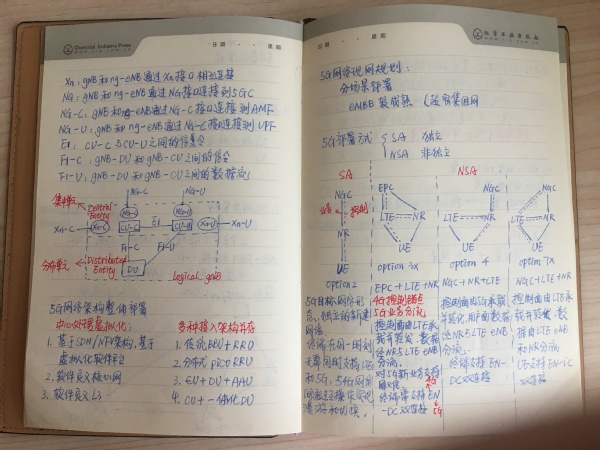 Chemical Industry Press
日期 星期
Xn：gNB和ng-eNB通过Xn接口相互连接
NG：gNB和ng-eNB通过NG接口连接到5GC
NG-C：gNB和ng-eNB通过NG-C接口连接到AMF
NG-U：gNB和ng-eNB通过NG-C接口连接到UPF
E1：CU-C与CU-U之间的信令
F1-C：gNB-DU和gNB-CU之间的信令
F1-U：gNB-DU和gNB-CU之间的数据流
NG-C NG-U
集中单元
Central Entity
NG-C NG-U
Xn-C Xn-C CU-C E1 CU-U Xn-U Xn-U
F1-C F1-U
分布单元
Distributed Entity
DU
Logical gNB
5G网络架构整体部署
中心处理虚拟化：
1. 基于SDN/NFV架构，基于
虚拟化软件平台
2. 软件定义核心网
3. 软件定义L3
多种接入架构并存
1. 传统BBU+RRU
2. 分布式pico RRU
3. CU+DU+AAU
4. CU+一体化DU
化学工业出版社
日期 星期
5G网络现网规划：
分场景部署
eMBB最成熟
5G部署方式
SA 独立
NSA 非独立
SA
NGC
业务 控制
NR
UE
option 2
5G目标网络形
态，独立的新建
网络
NSA
EPC
LTE NR
UE
option 3x
EPC+LTE+NR
4G控制锚点
5G业务分流
控制面由LTE承
载并转发，数据
给NR与LTE
分流。
对5G新业务支持
难。
终端需支持EN
-DC双连接
4G
5G
NGC
LTE NR
UE
option 4
NGC+NR+LTE
控制面由5G承载
给NR与LTE eNB
分流
终端支持EN-
DC双连接
NGC
LTE NR
UE
option 7x
NGC+LTE+NR
控制面由LTE承
载并转发，数
据由LTE eNB
和NR分流
双连接